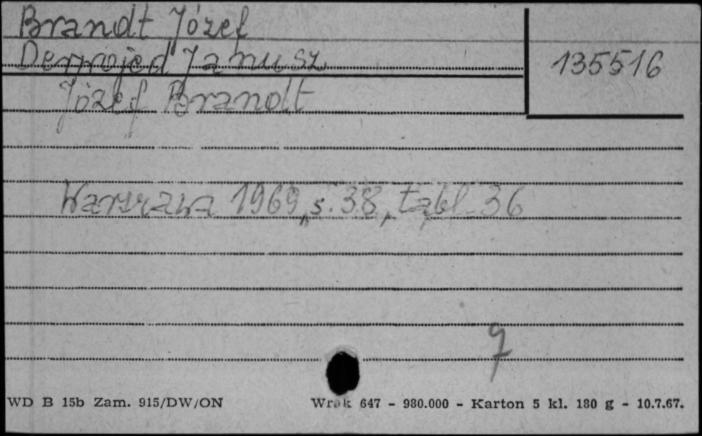 Brandt Józef
135516
Derwojed Janusz
Józef Brandt
Warszawa 1969, s. 38, tabl. 36
7
WD B 15b Zam. 915/DW/ON Wrok 647 - 980.000 - Karton 5 kl. 180 g - 10.7.67.